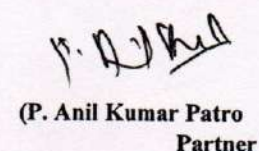 (P. Anil Kumar Patro
Partner